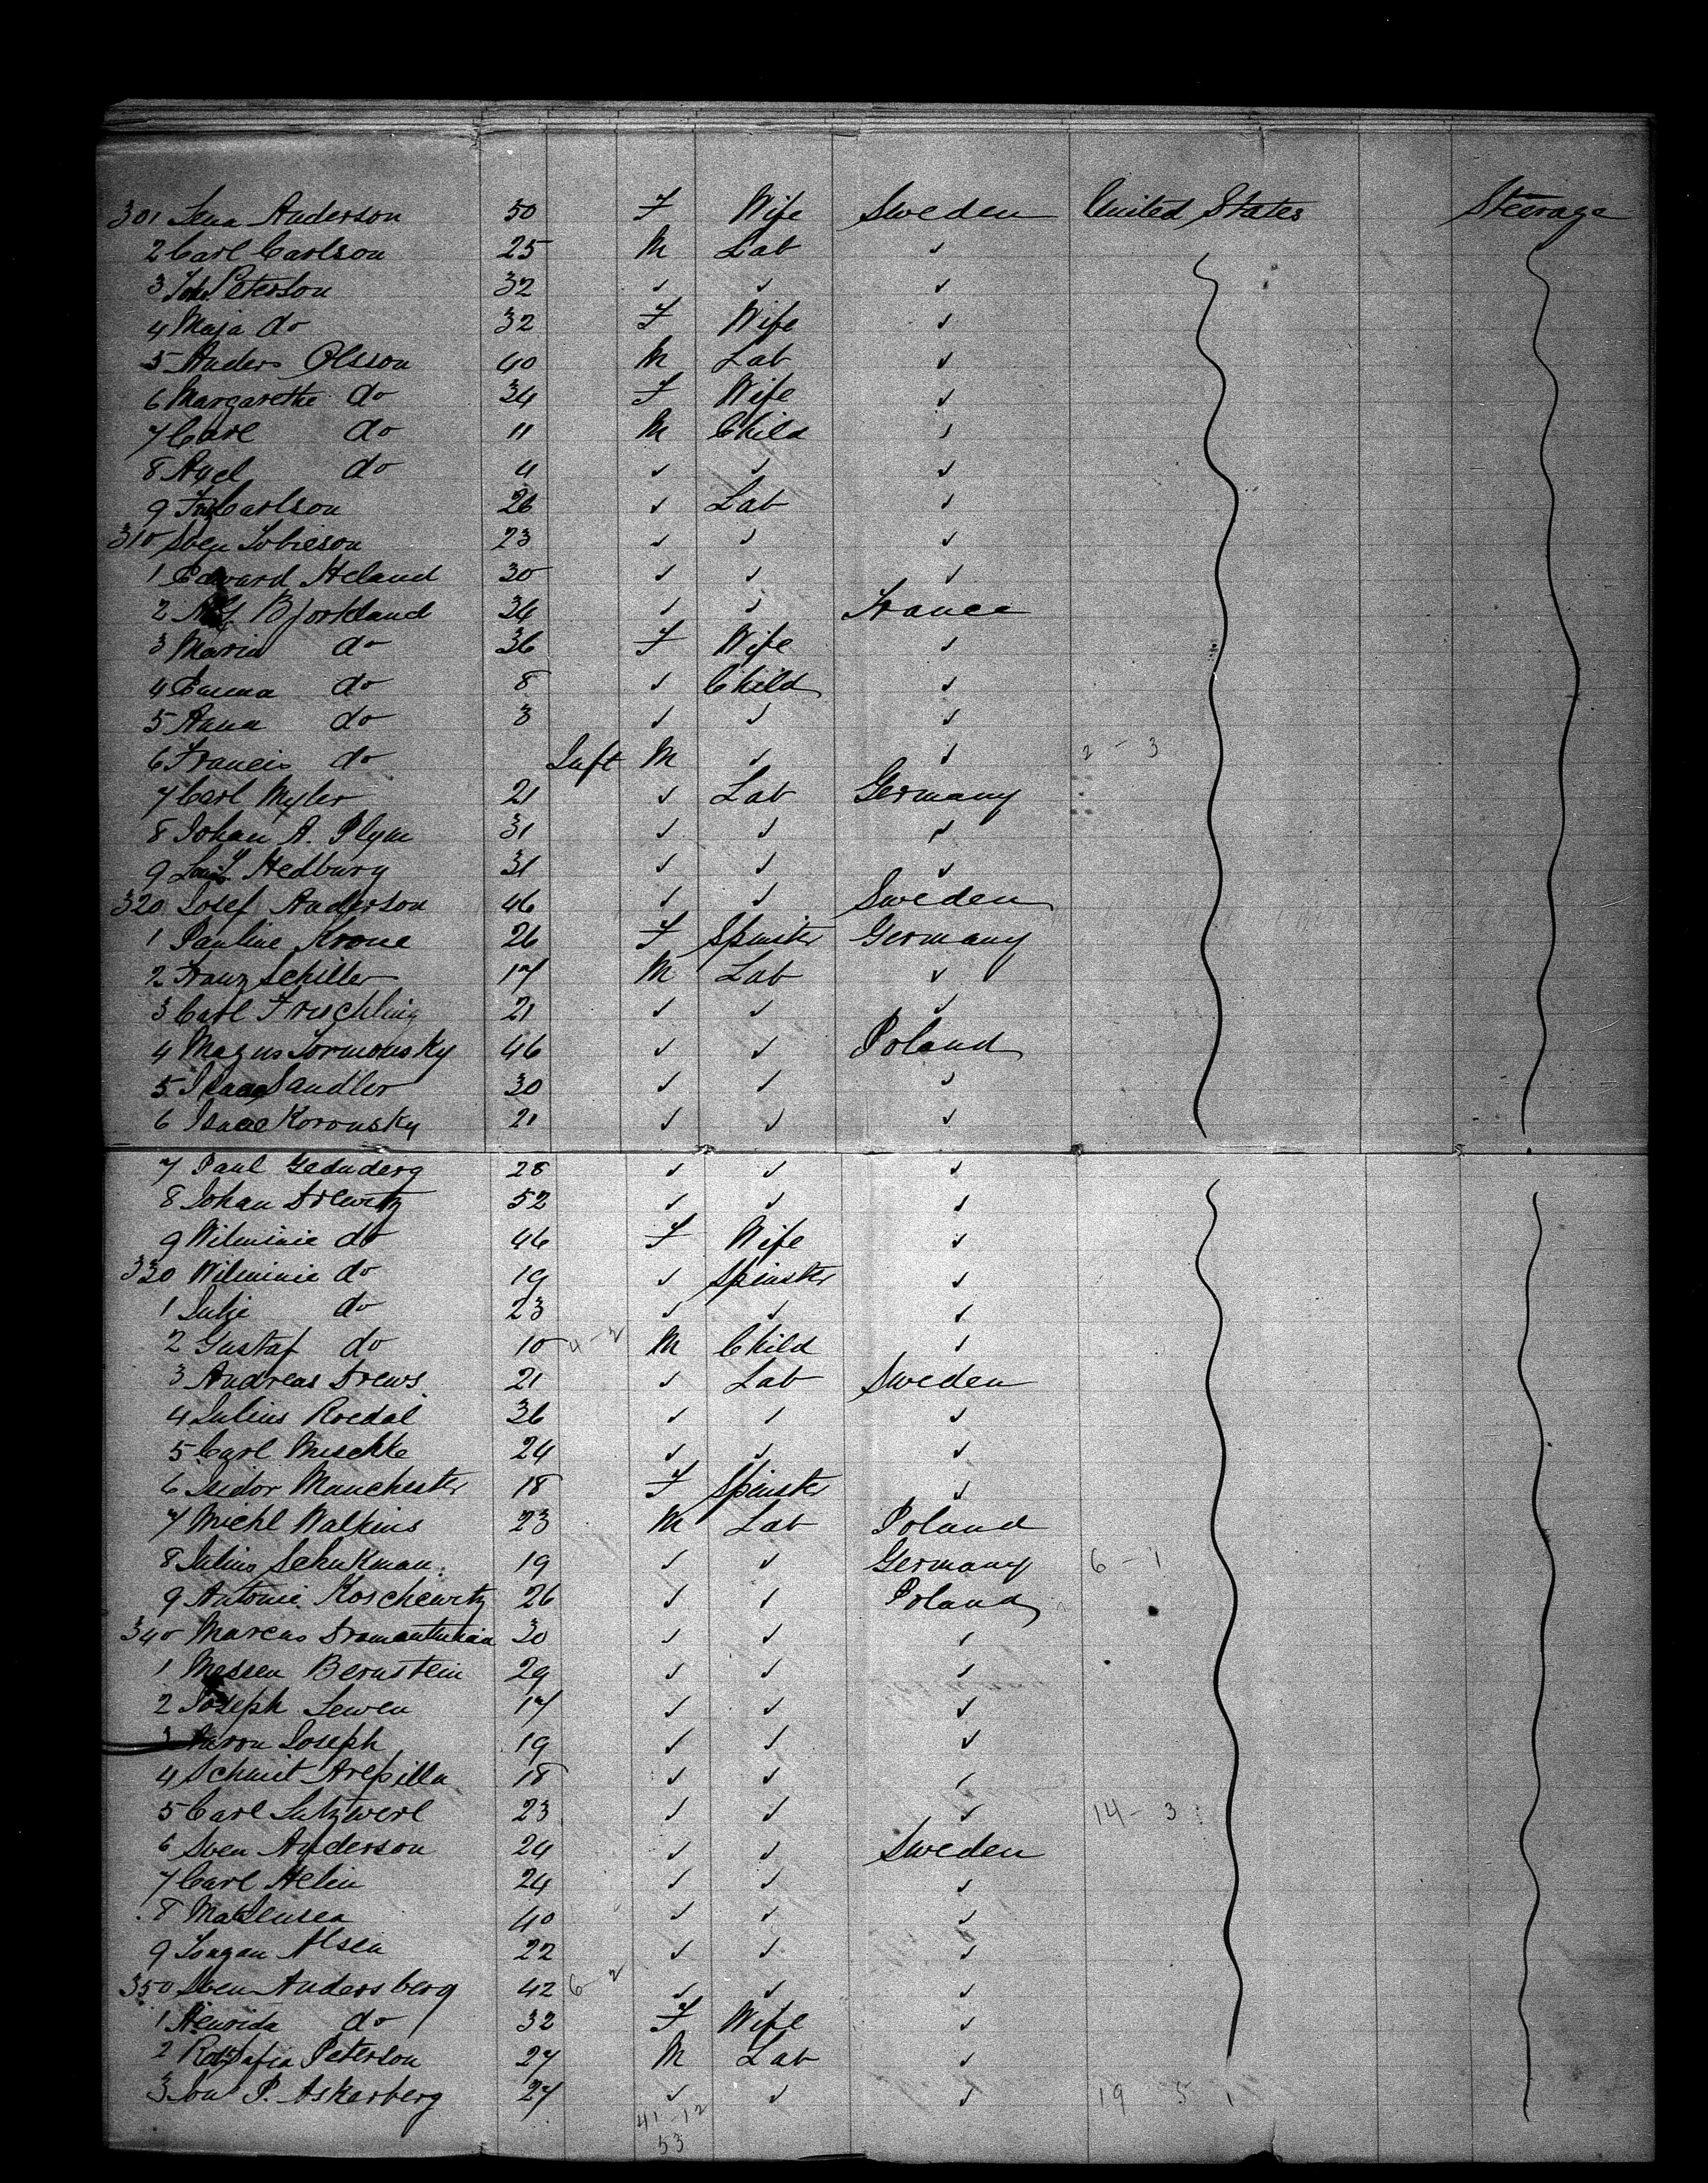 301 Lena Anderson 50 F Wife Sweden United States Steerage
2 Carl Carlson 25 M Lab ✓
3 Joh Peterson 32 ✓ ✓ ✓
4 Maja do 32 F Wife ✓
5 Anders Olsson 40 M Lab ✓
6 Margarethe do 34 F Wife ✓
7 Carl do 11 M Child ✓
8 Axel do 4 ✓ ✓ ✓
9 Carlson 26 ✓ Lab ✓
310 Sven Tobieson 23 ✓ ✓ ✓
1 Edward Heland 30 ✓ ✓ ✓
2 Bjorkland 34 ✓ ✓ France
3 Maria do 36 F Wife ✓
4 Emma do 8 ✓ Child ✓
5 Anna do 3 ✓ ✓ ✓
6 Francis do Inft M ✓ ✓ 2 - 3
7 Carl Myler 21 ✓ Lab Germany
8 Johan A. Plym 31 ✓ ✓ ✓
9 Hedburg 31 ✓ ✓ ✓
320 Josef Anderson 46 ✓ ✓ Sweden
1 Pauline Krone 26 F Spinster Germany
2 Franz Schiller 17 M Lab ✓
3 Carl Frischling 21 ✓ ✓ ✓
4 Magnus Tormonsky 46 ✓ ✓ Poland
5 Isaac Sandler 30 ✓ ✓ ✓
6 Isaac Koronsky 21 ✓ ✓ ✓
7 Paul Gednderg 28 ✓ ✓ ✓
8 Johan Drewitz 52 ✓ ✓ ✓
9 Wilminie do 46 F Wife ✓
330 Wilminie do 19 ✓ Spinster ✓
1 Julie do 23 ✓ ✓ ✓
2 Gustaf do 10 4-2 M Child ✓
3 Andreas Drews 21 ✓ Lab Sweden
4 Julius Roedal 36 ✓ ✓ ✓
5 Carl Mischke 24 ✓ ✓ ✓
6 Isidor Manchester 18 F Spinster ✓
7 Michl Walkins 23 M Lab Poland
8 Julius Schukman 19 ✓ ✓ Germany 6 - 1
9 Antonie Koschewitz 26 ✓ ✓ Poland
340 Marcus 30 ✓ ✓ ✓
1 Messen Bernstein 29 ✓ ✓ ✓
2 Joseph Lewen 17 ✓ ✓ ✓
3 Aaron Joseph 19 ✓ ✓ ✓
4 Schmit Arepilla 18 ✓ ✓ ✓
5 Carl Lutzwerl 23 ✓ ✓ ✓ 14 - 3
6 Sven Anderson 24 ✓ ✓ Sweden
7 Carl Helin 24 ✓ ✓ ✓
8 40 ✓ ✓ ✓
9 Alsen 22 ✓ ✓ ✓
350 Sven Andersberg 42 6-2 ✓ ✓ ✓
1 Henrida do 32 F Wife ✓
2 Peterson 27 M Lab ✓
3 Jon P. Askerberg 27 ✓ ✓ ✓ 19 5 1
41-12
53